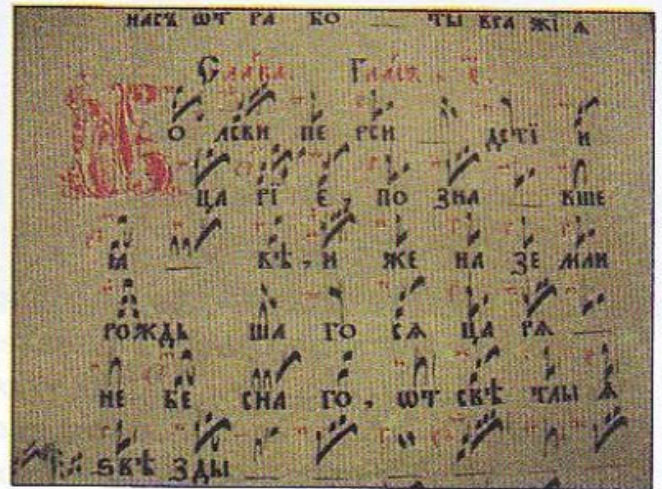 насъ ѡт ра бо — ты вра жі ѧ
Слава. Гласъ. е҃.
В О лсви пе рси — дстї и
ца рї е, по зна — вше
ꙗ — вѣ, и же на зе мли
рождь ша го сѧ ца рѧ —
не бе сна го, ѡт свѣ тлы ѧ
ѕвѣ зды